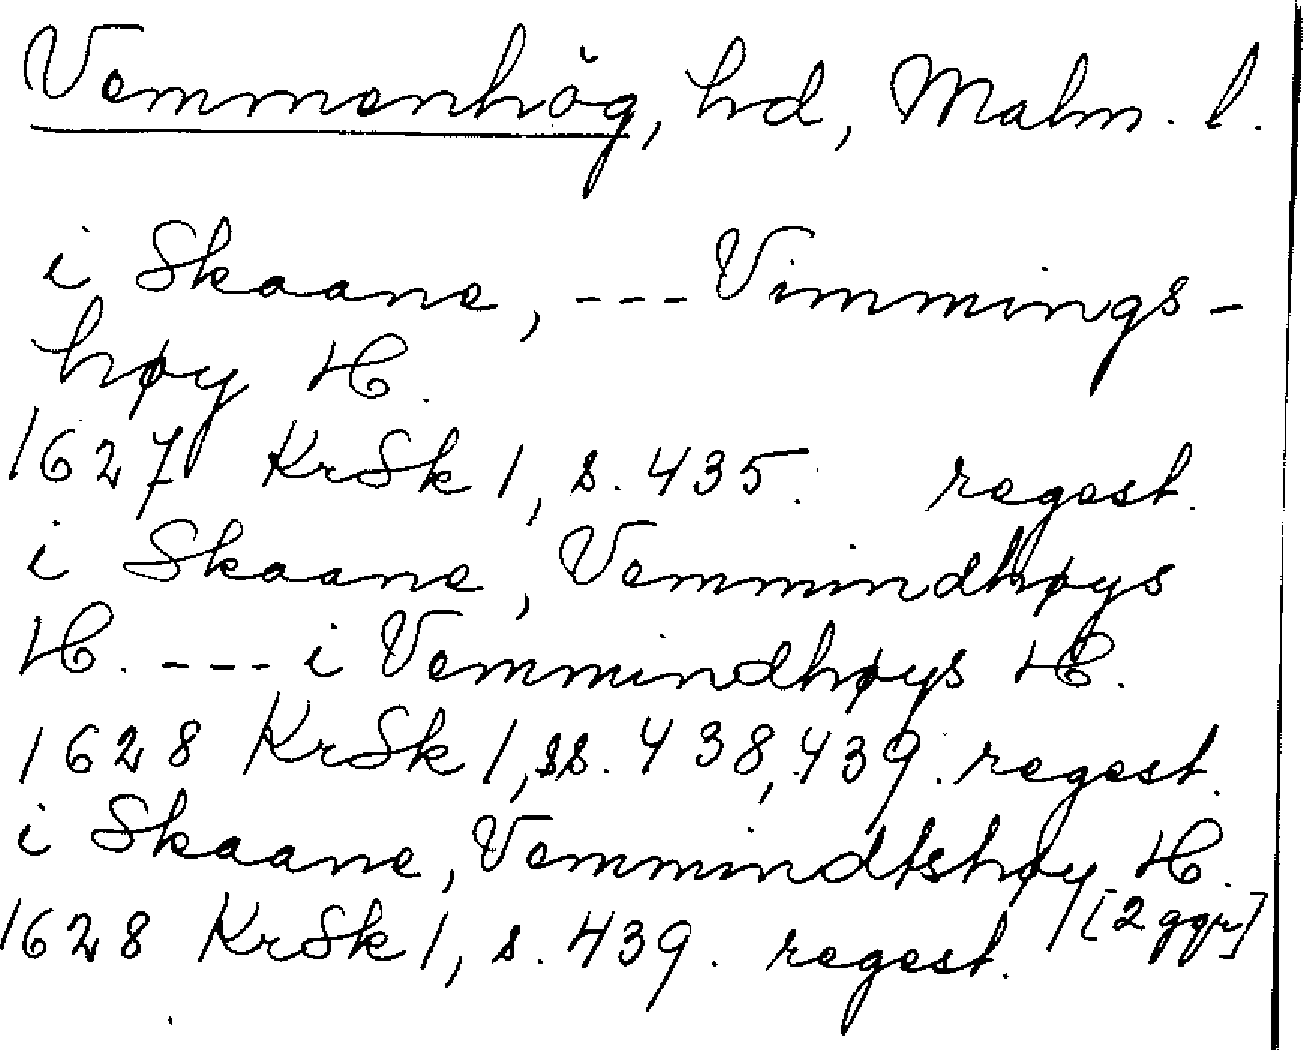 Vemmenhög, hd, Malm. l.
i Skaane, --- Vimmings-
høy H.
1627 KrSk 1, s. 435. regest.
i Skaane, Vemmindhøys
H. --- i Vemmindhøys H.
1628 KrSk 1, ss. 438, 439. regest.
i Skaane, Vemmindtshøy H.
1628 KrSk 1, s. 439. regest. [2 ggr]